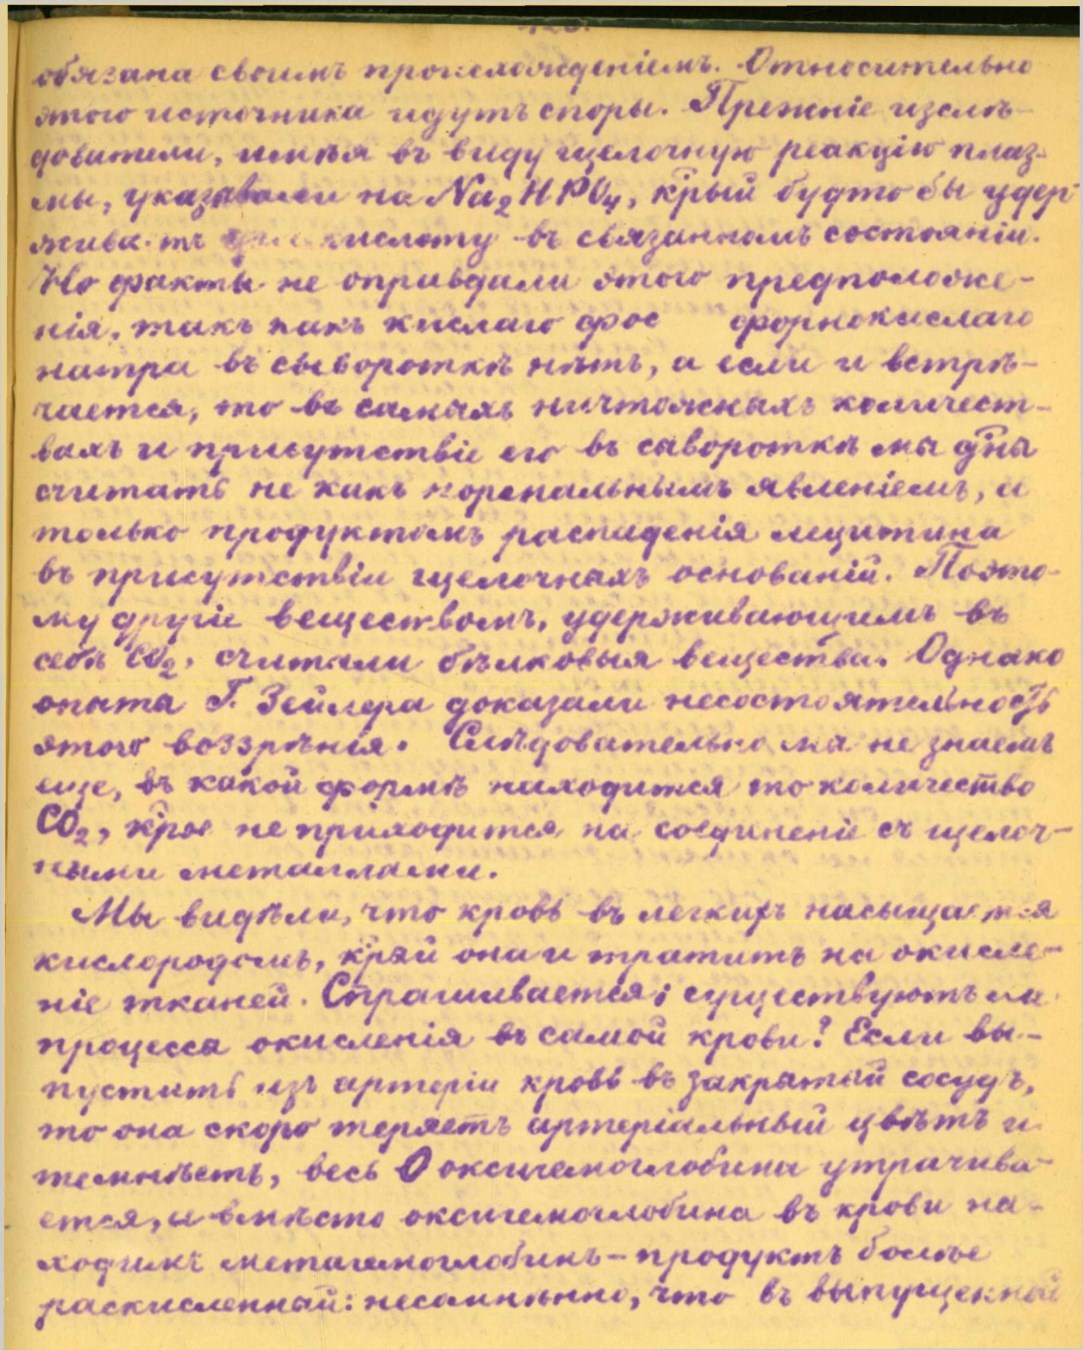 обязана своимъ происхожденіемъ. Относительно
этого источника идутъ споры. Прежніе изслѣ-
дователи, имѣя въ виду щелочную реакцію плаз-
мы, указывали на Na₂HPO₄, к̑рый будто бы удер-
жива тъ кислоту въ связанномъ состояніи.
Но факты не оправдали этого предположе-
нія, такъ какъ кислаго фос форнокислаго
натра въ сывороткѣ нѣтъ, а если и встрѣ-
чается, то въ самыхъ ничтожныхъ количест-
вахъ и присутствіе его въ сывороткѣ мы д̑ны
считать не какъ нормальнымъ явленіемъ, а
только продуктомъ распаденія лецитина
въ присутствіи щелочныхъ основаній. Поэто-
му другіе веществомъ, удерживающимъ въ
себѣ CO₂, считали бѣлковыя вещества. Однако
опыта Г. Зейлера доказали несостоятельность
этого воззрѣнія. Слѣдовательно мы не знаемъ
еще, въ какой формѣ находится то количество
CO₂, к̑рое не приходится на соединеніе съ щелоч-
ными металлами.
Мы видѣли, что кровь въ легкихъ насыщается
кислородомъ, к̑рый она и тратитъ на окисле-
ніе тканей. Спрашивается; существуютъ ли
процесса окисленія въ самой крови? Если вы-
пустить изъ артеріи кровь въ закрытый сосудъ,
то она скоро теряетъ артеріальный цвѣтъ и
темнѣетъ, весь O оксигемоглобина утрачива-
ется, и вмѣсто оксигемоглобина въ крови на-
ходимъ метагемоглобинъ - продуктъ болѣе
раскисленный: несомнѣнно, что въ выпущенной